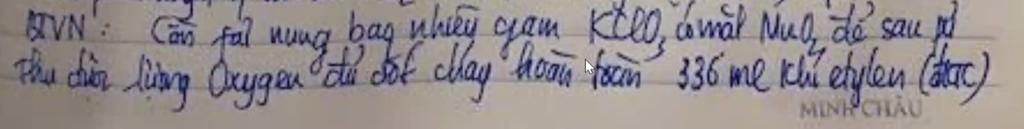 BTVN: Cần fải nung bao nhiêu gam KClO3 có mặt MnO2 để sau pứ
thu được lượng Oxygen đủ đốt cháy hoàn toàn 336 ml khí etylen (đktc)
MINH CHÂU